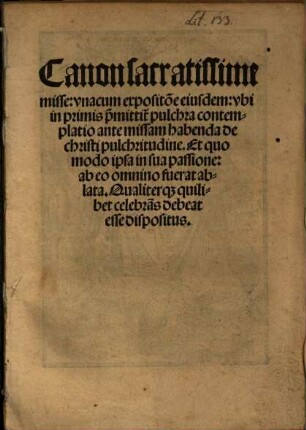 Lit. 133.
Canon sacratissime
misse: vnacum expositõe eiusdem: vbi
in primis p̃mittit᷑ pulchra contem-
platio ante missam habenda de
christi pulchritudine. Et quo
modo ipsa in sua passione:
ab eo omnino fuerat ab-
lata. Qualiterqꝫ quili-
bet celebrãs debeat
esse dispositus.